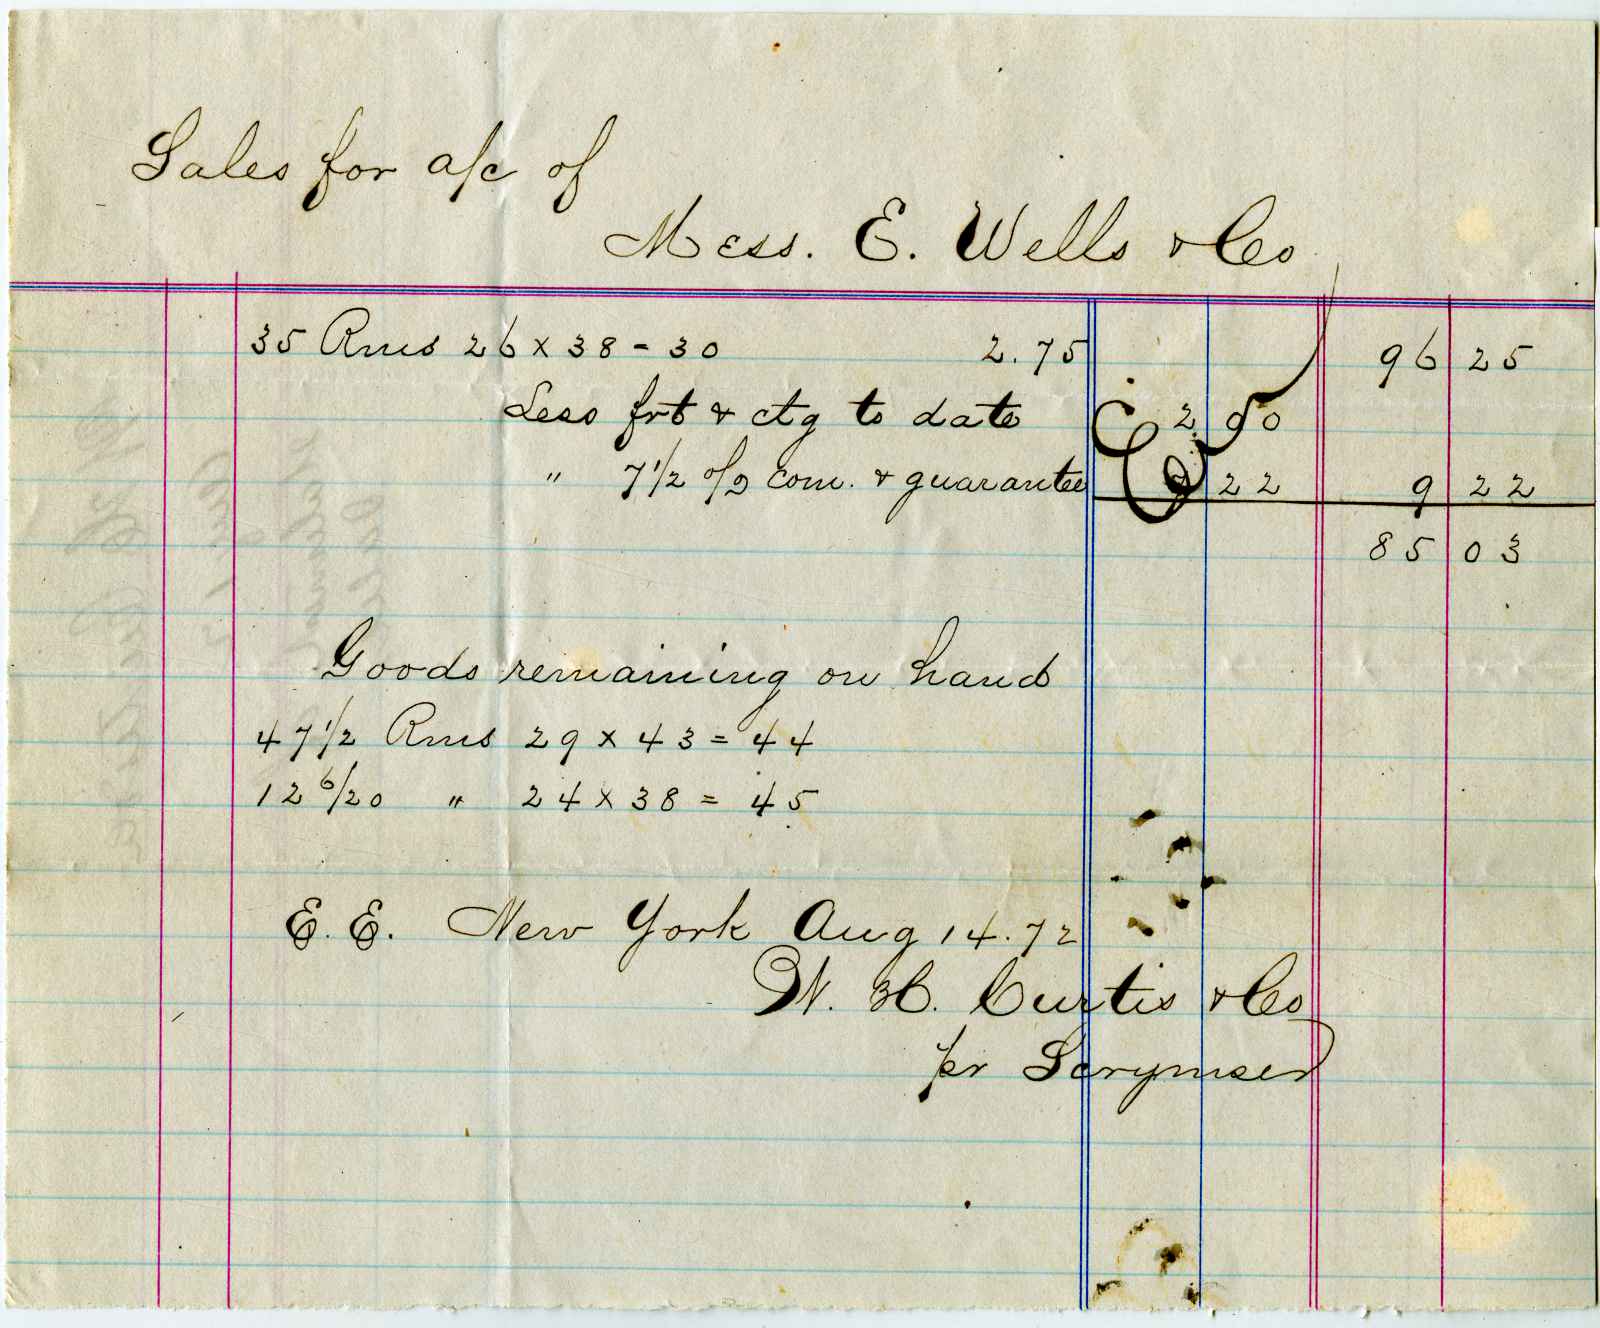 Sales for a/c of
Mess. E. Wells & Co
35 Rms 26 x 38 - 30 2.75 96 25
Less frt & ctg to date 2 00
" 7 1/2 o/o com. & guarantee 7 22 9 22
85 03
Goods remaining on hand
47 1/2 Rms 29 x 43 = 44
12 6/20 " 24 x 38 = 45
E. E. New York Aug 14. 72
W. H. Curtis & Co
pr Scrymser